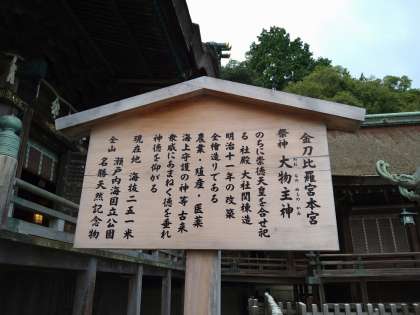 金刀比羅宮本宮
祭神 大物主神
のちに崇徳天皇を合せ祀
る 社殿 大社関棟造
明治十一年の改築
全檜造りである
農業・殖産・医薬
海上守護の神等古来
衆威にあまねく徳を垂れ
神徳を仰がる
現在地 海抜二五一米
全山 瀬戸内海国立公園
名勝天然記念物